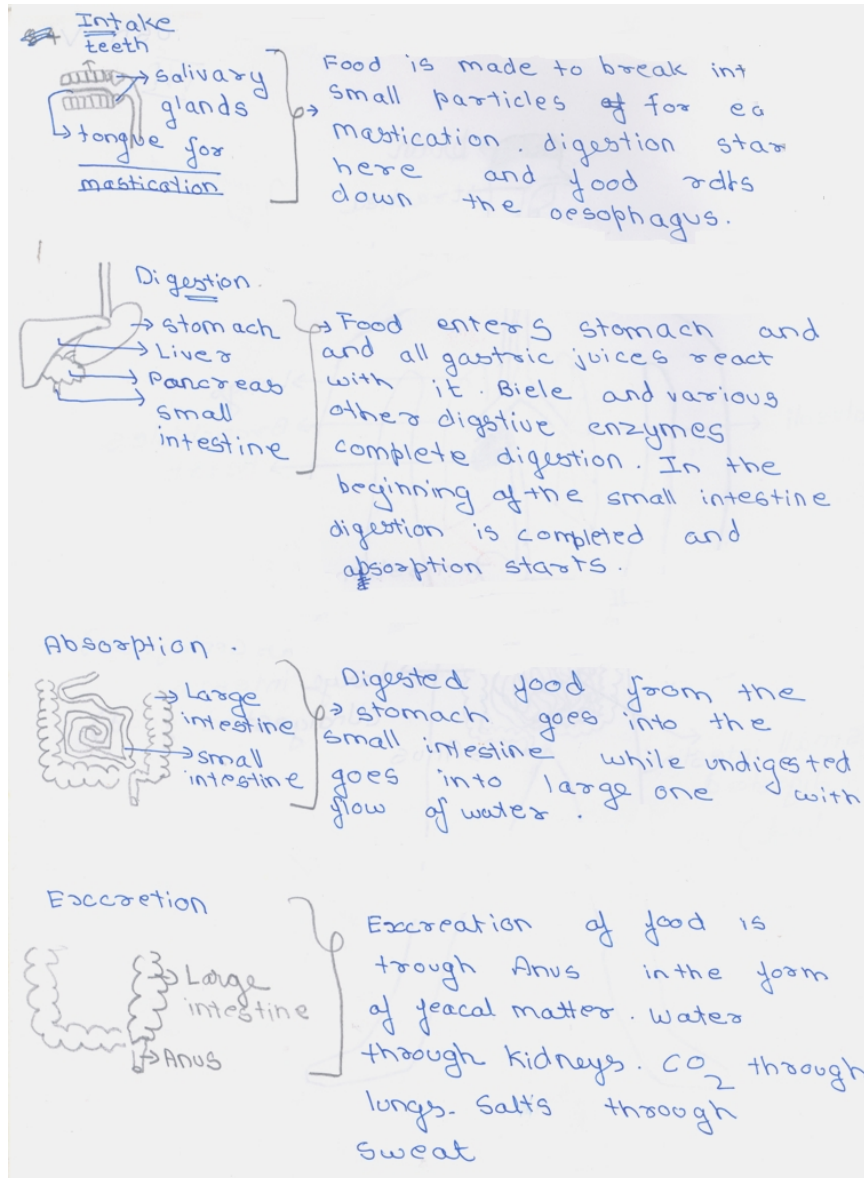 Intake
teeth
salivary
glands
tongue for
mastication
Food is made to break int
small particles for ea
mastication. digestion star
here and food
down the oesophagus.
Digestion.
stomach
Liver
Pancreas
small
intestine
Food enters stomach and
and all gastric juices react
with it. Biele and various
other digstive enzymes
complete digestion. In the
beginning of the small intestine
digestion is completed and
absorption starts.
Absorption.
Large
intestine
small
intestine
Digested food from the
stomach goes into the
small intestine while undigested
goes into large one with
flow of water.
Exccretion
Large
intestine
Anus
Excreation of food is
trough Anus in the form
of feacal matter. Water
through kidneys. CO2 through
lungs. Salts through
sweat